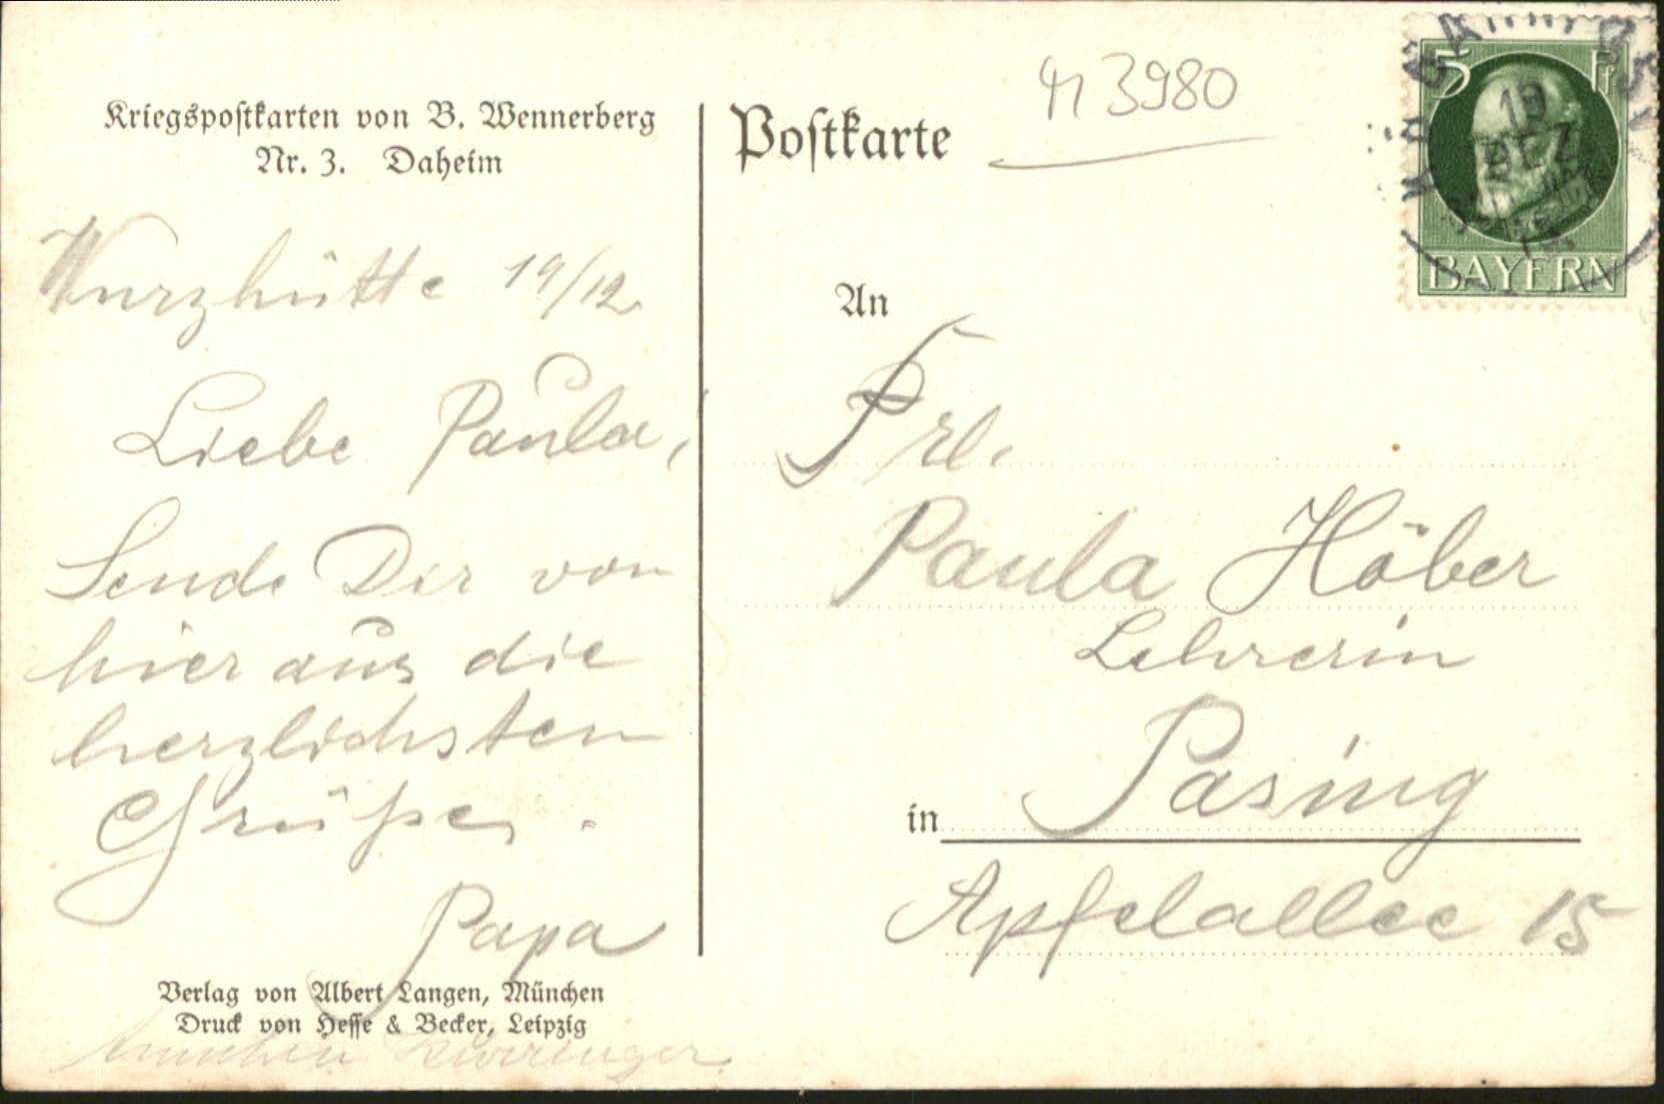 Kriegspostkarten von B. Wennerberg
Nr. 3. Daheim
Wurzhütte 19/12
Liebe Paula,
Sende Dir von
hier aus die
herzlichsten
Grüße.
Papa
Verlag von Albert Langen, München
Druck von Hesse & Becker, Leipzig
Postkarte
3980
5 Pf
19
DEZ
BAYERN
An
Frl.
Paula Höber
Lehrerin
in Pasing
Apfelallee 15